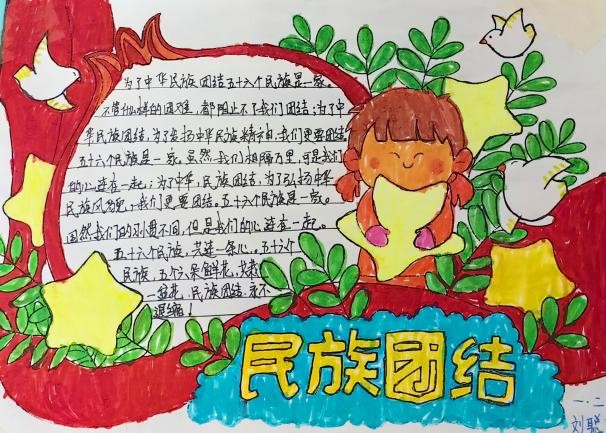 为了中华民族团结五十六个民族是一家。
不管什么样的困难，都阻止不了我们团结；为了中
华民族团结，为了发扬中华民族精神，我们更要团结
五十六个民族是一家，虽然我们相隔万里，可是我们
的心连在一起；为了中华，民族团结，为了弘扬中华
民族风貌，我们更要团结。五十六个民族是一家。
固然我们的习惯不同，但是我们的心连在一起。
五十六个民族，共连一条心，五十六个
民族，五个六朵鲜花，
一盆花，民族团结永不
退缩！
民族团结
一.二
刘聪